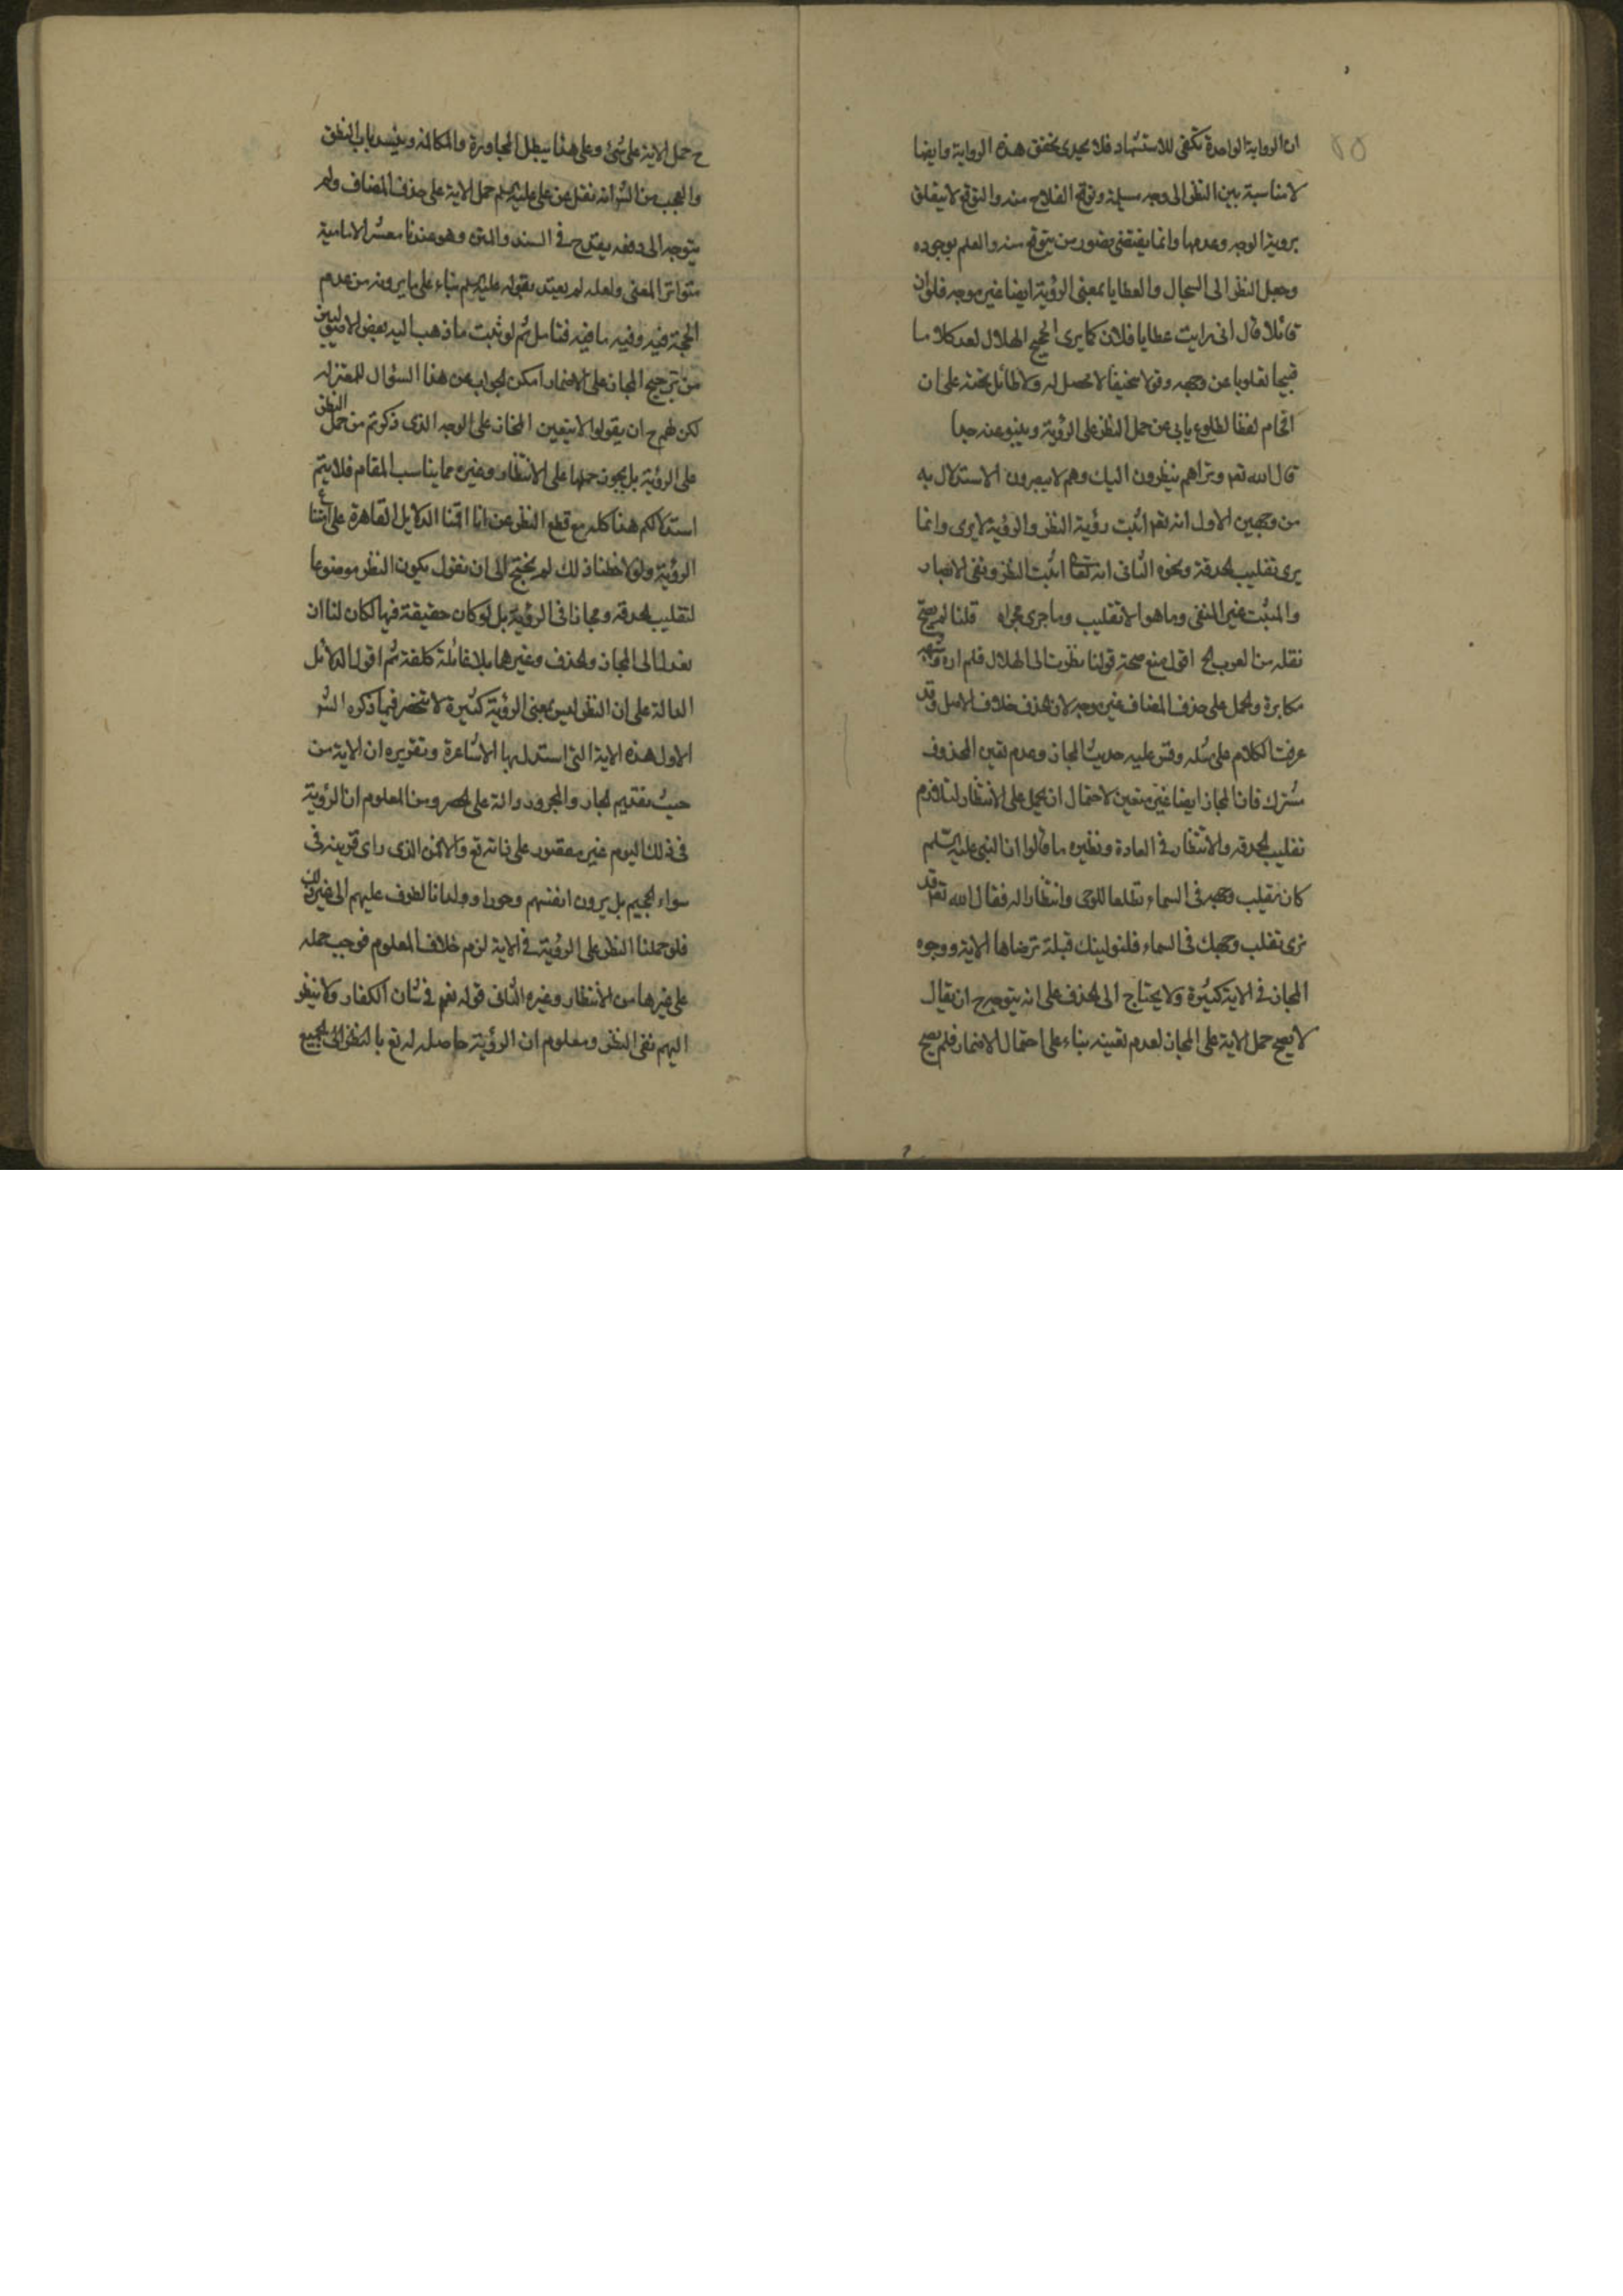 ان الرواية الواحدة تكفى للاستشهاد فلا يجدى تحقق هذه الرواية وايضا
لا مناسبة بين النظر الى وجه مسيلمة وتوقع الفلاح منه والتوقع لا يتعلق
برؤية الوجه وعدمها وانما يقتضى تصور من يتوقع منه والعلم بوجوده
وجعل النظر الى السجال والعطايا بمعنى الرؤية ايضا غير موجه فلو ان
قائلا قال انى رايت عطايا فلان كما يرى الحجيج الهلال لعد كلاما
قبيحا مقلوبا عن وجهه وقولا سخيفا لا محصل له ولا طائل تحته على ان
اقحام لفظ الطلوع يابى عن حمل النظر على الرؤية وينبو عنه جدا
قال الله تعم وتراهم ينظرون اليك وهم لا يبصرون الاستدلال به
من وجهين الاول انه تعم اثبت رؤية النظر والرؤية لا يرى وانما
يرى تقليب الحدقة ونحوه الثانى انه تعا اثبت النظر ونفى الابصار
والمثبت غير المنفى وما هو الا تقليب وما جرى مجراه قلنا لم يصح
نقله من العرب الخ اقول منع صحة قولنا نظرت الى الهلال فلم اره
مكابرة والحمل على حذف المضاف غير موجه لان الحذف خلاف الاصل وقد
عرفت الكلام على مثله وقس عليه حديث المجاز وعدم تعين المحذوف
مشترك فان المجاز ايضا غير متعين لاحتمال ان يحمل على الانتظار لتلازم
تقليب الحدقة والانتظار فى العادة ونظيره ما قالوا ان النبى عليه السلم
كان يقلب وجهه فى السماء تطلعا للوحى وانتظارا له فقال الله تعم قد
نرى تقلب وجهك فى السماء فلنولينك قبلة ترضاها الاية ووجوه
المجاز فى الاية كثيرة ولا يحتاج الى الحذف على انه يتوجه ح ان يقال
لا يصح حمل الاية على المجاز لعدم تعينه بناء على احتمال الاضمار فلم يصح
ح حمل الاية على شئ وعلى هذا يبطل المحاورة والمكالمة وينسد باب النطق
والعجب من الشر انه نقل عن على عليه السلم حمل الاية على حذف المضاف ولم
يتوجه الى دفعه بقدح فى السند والمتن وهو عندنا معشر الامامية
متواتر المعنى ولعله لم يعتد بقوله عليه السلم بناء على ما يرونه من عدم
الحجة فيه وفيه ما فيه فتامل ثم لو ثبت ما ذهب اليه بعض الاصوليين
من ترجيح المجاز على الاضمار امكن الجواب عن هذا السؤال للمعتزلة
لكن لهم ح ان يقولوا لا يتعين المجاز على الوجه الذى ذكرتم من حمل النظر
على الرؤية بل يجوز حملها على الانتظار وغيره مما يناسب المقام فلا يتم
استدلالكم هذا كله مع قطع النظر عن انا اقمنا الدلايل القاهرة على امتناع
الرؤية ولو لاحظنا ذلك لم نحتج الى ان نقول بكون النظر موضوعا
لتقليب الحدقة ومجازا فى الرؤية بل لو كان حقيقة فيها لكان لنا ان
نعدل الى المجاز والحذف وغيرهما بلا غائلة كلفة ثم اقول الدلائل
الدالة على ان النظر ليس بمعنى الرؤية كثيرة لا تنحصر فيما ذكره الشر
الاول هذه الاية التى استدل بها الاشاعرة وتقريره ان الاية من
حيث تقديم الجار والمجرور دالة على الحصر ومن المعلوم ان الرؤية
فى ذلك اليوم غير مقصور على ذاته تع والا لمن الذى راى قرينه فى
سواء الجحيم بل يرون انفسهم وحورا وولدانا لطوف عليهم الى غير ذلك
فلو حملنا النظر على الرؤية فى الاية لزم خلاف المعلوم فوجب حمله
على غيرها من الانتظار وغيره الثانى قوله تعم فى شان الكفار ولا ينظر
اليهم نفى النظر ومعلوم ان الرؤية حاصلة له تع بالنظر الى الجميع